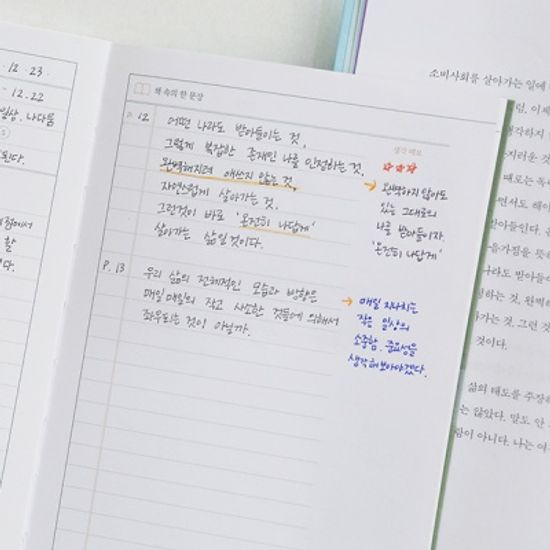 12. 23.
12. 22
일상. 나다움
된다.
점에서
할
다.
책 속의 한 문장
생각 메모
P. 12
어떤 나라도 받아들이는 것,
그렇게 복잡한 존재인 나를 인정하는 것,
완벽해지려 애쓰지 않는 것,
자연스럽게 살아가는 것.
그런것이 바로 '온전히 나답게'
살아가는 삶일 것이다.
→ 완벽하지 않아도
있는 그대로의
나를 받아들이자.
'온전히 나답게'
P. 13
우리 삶의 전체적인 모습과 방향은
매일 매일의 작고 사소한 것들에 의해서
좌우되는 것이 아닐까.
→ 매일 지나치는
작은 일상의
소중함. 중요성을
생각해보아야겠다.
소비사회를 살아가는 일에
럼. 이제
생각하지
스러운 것
때로는 독
면서도 해야
받아들인다.
음가짐을 듯하
구라도 받아들
정하는 것, 완벽
아가는 것. 그런 것
것이다.
삶의 태도를 주장하
는 않았다. 말도 안
람이 아니다. 나는 여